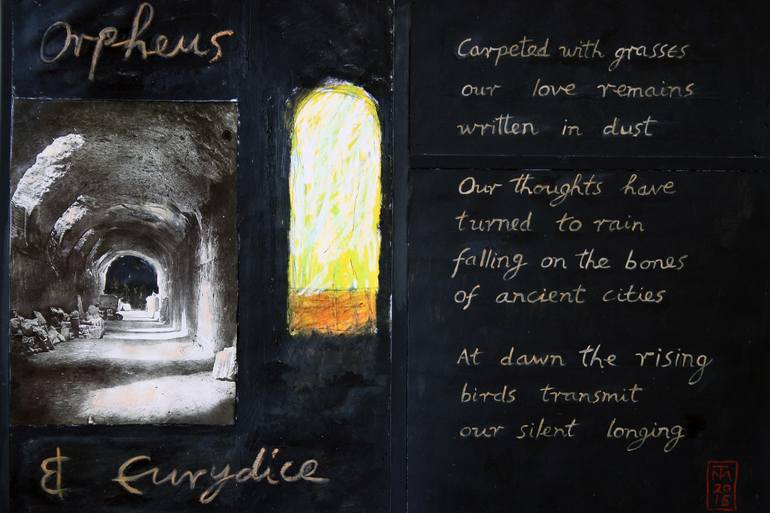 Orpheus
& Eurydice
Carpeted with grasses
our love remains
written in dust
Our thoughts have
turned to rain
falling on the bones
of ancient cities
At dawn the rising
birds transmit
our silent longing
TM
20
15